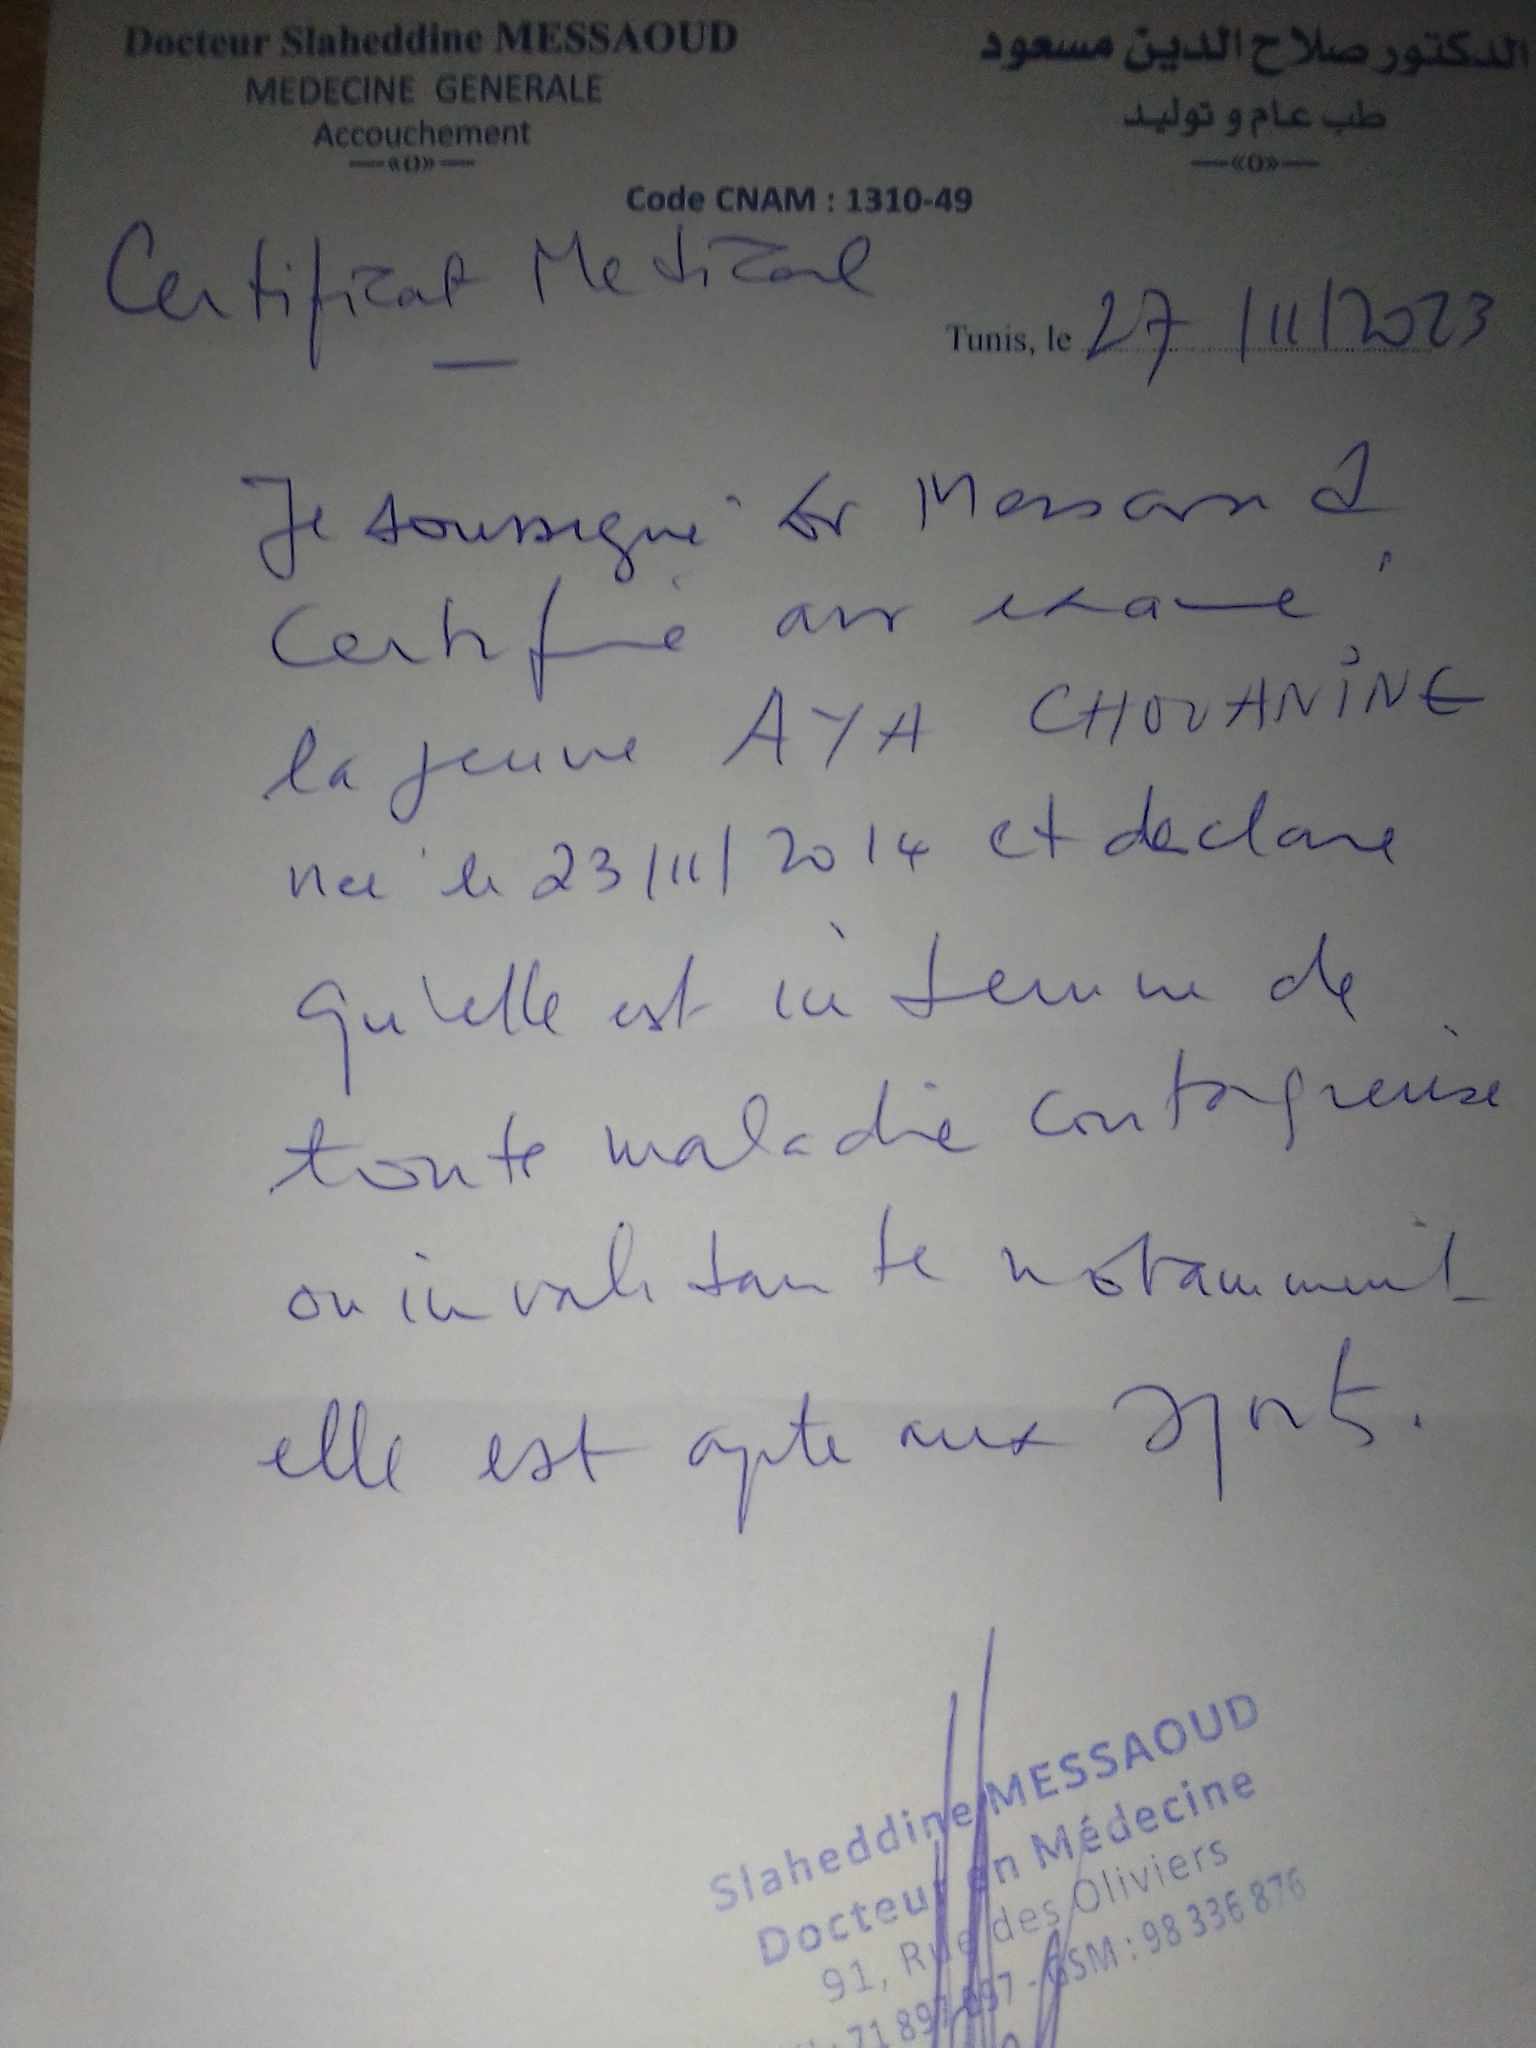 Docteur Slaheddine MESSAOUD
MEDECINE GENERALE
Accouchement
—«O»—
الدكتور صلاح الدين مسعود
طب عام و توليد
—«O»—
Code CNAM : 1310-49
Certificat Medical
Tunis, le 27/11/2023
Je soussigné Dr Messaoud
Certifie avr examé
la jeune AYA CHOUANINE
née le 23/11/2014 et declare
qu'elle est indemne de
toute maladie contagieuse
ou invalidante notamment
elle est apte aux sports.
Slaheddine MESSAOUD
Docteur en Médecine
91, Rue des Oliviers
71 897 - GSM : 98 336 876